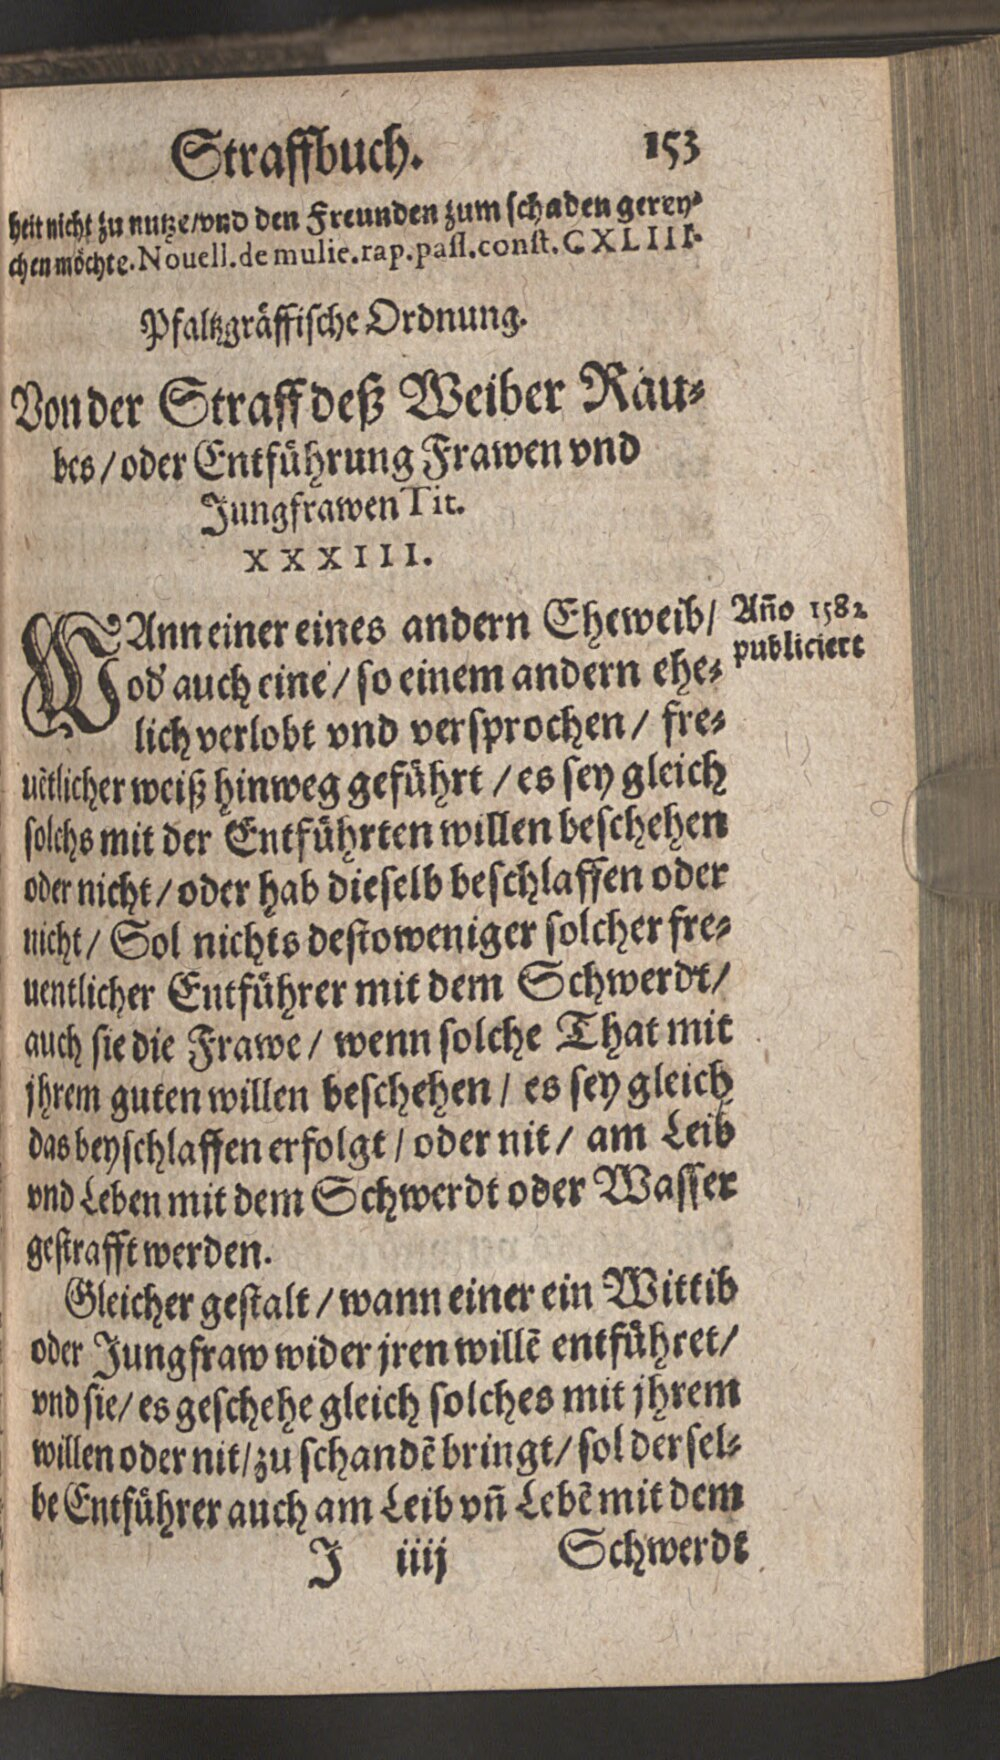 Straffbuch. 153
heit nicht zu nutze/vnd den Freunden zum schaden gerey⸗
chen möchte. Nouell. de mulie. rap. pass. const. CXLIII.
Pfaltzgräffische Ordnung.
Von der Straff deß Weiber Rau⸗
bes/oder Entführung Frawen vnd
Jungfrawen Tit.
XXXIII.
WAnn einer eines andern Eheweib/
od' auch eine/ so einem andern ehe⸗
lich verlobt vnd versprochen/ fre⸗
uẽtlicher weiß hinweg geführt/es sey gleich
solchs mit der Entführten willen beschehen
oder nicht/oder hab dieselb beschlaffen oder
nicht/ Sol nichts destoweniger solcher fre⸗
uentlicher Entführer mit dem Schwerdt/
auch sie die Frawe/ wenn solche That mit
jhrem guten willen beschehen/ es sey gleich
das beyschlaffen erfolgt/ oder nit/ am Leib
vnd Leben mit dem Schwerdt oder Wasser
gestrafft werden.
Gleicher gestalt/wann einer ein Wittib
oder Jungfraw wider jren willẽ entführet/
vnd sie/ es geschehe gleich solches mit jhrem
willen oder nit/zu schandẽ bringt/sol dersel⸗
be Entführer auch am Leib vñ Lebẽ mit dem
J iiij Schwerdt
Año 1582
publiciert